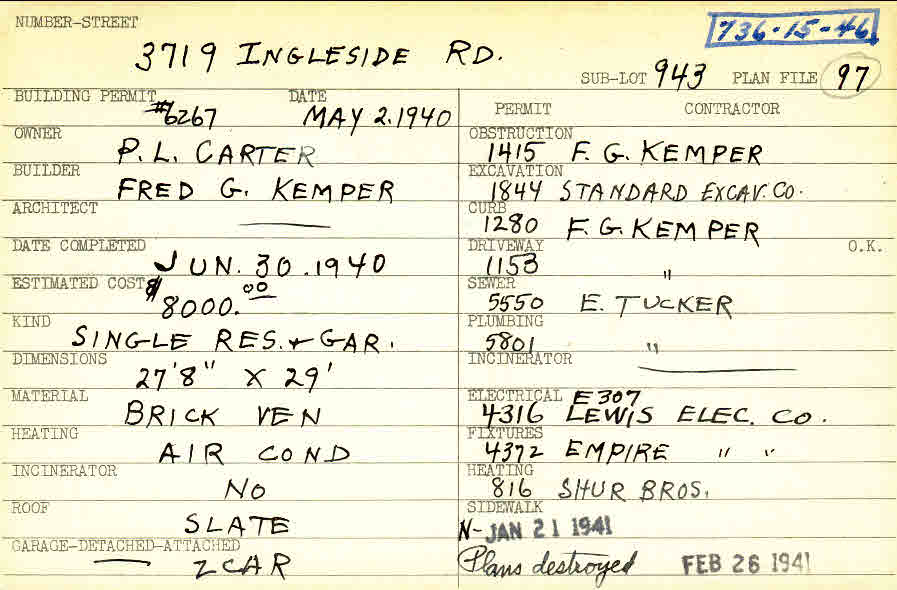 NUMBER-STREET
736-15-46
3719 INGLESIDE RD.
SUB-LOT 943 PLAN FILE 97
BUILDING PERMIT DATE
#6267 MAY 2.1940
OWNER
P. L. CARTER
BUILDER
FRED G. KEMPER
ARCHITECT
DATE COMPLETED
JUN. 30.1940
ESTIMATED COST
$8000.00
KIND
SINGLE RES. + GAR.
DIMENSIONS
27'8" X 29'
MATERIAL
BRICK VEN
HEATING
AIR COND
INCINERATOR
NO
ROOF
SLATE
GARAGE-DETACHED-ATTACHED
— 2 CAR
PERMIT CONTRACTOR
OBSTRUCTION
1415 F. G. KEMPER
EXCAVATION
1844 STANDARD EXCAV. CO.
CURB
1280 F. G. KEMPER
DRIVEWAY O.K.
1153 "
SEWER
5550 E. TUCKER
PLUMBING
5801 "
INCINERATOR
ELECTRICAL E307
4316 LEWIS ELEC. CO.
FIXTURES
4372 EMPIRE " "
HEATING
816 SHUR BROS.
SIDEWALK
N- JAN 21 1941
Plans destroyed FEB 26 1941